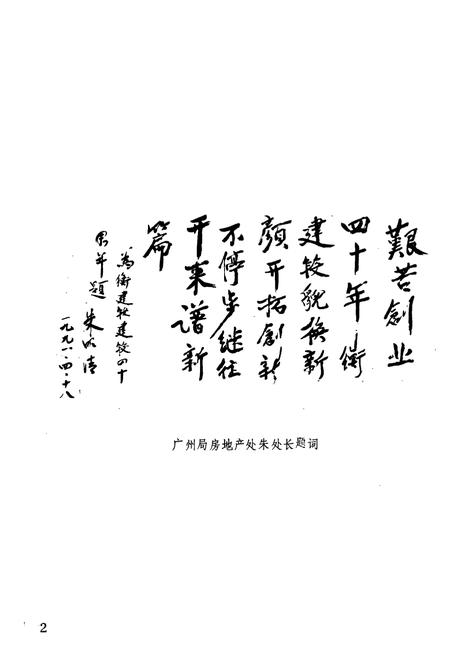 艱苦創业
四十年衡
建段貌换新
顔开拓創新
不停步继往
开来谱新
篇
为衡建段建段四十
周年题 朱
一九九一·四·十八
广州局房地产处朱处长题词
2